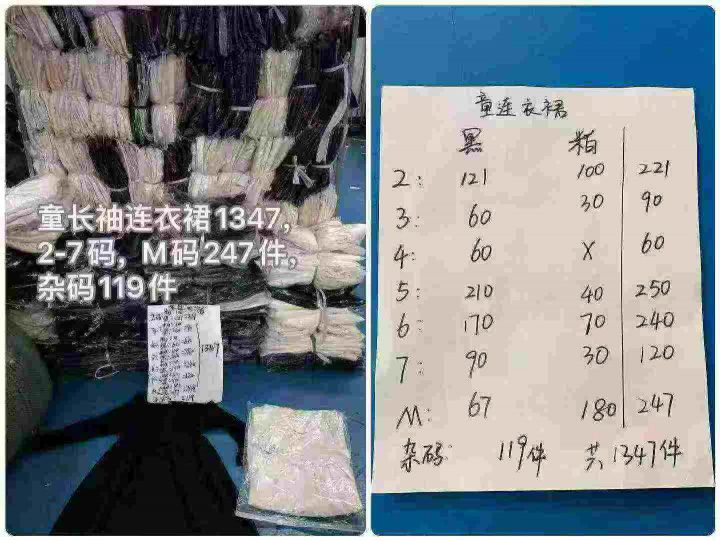 童长袖连衣裙1347,
2-7码，M码247件,
杂码119件
1347
童连衣裙
黑 粕
2: 121 100 221
3: 60 30 90
4: 60 X 60
5: 210 40 250
6: 170 70 240
7: 90 30 120
M: 67 180 247
杂码: 119件 共1347件